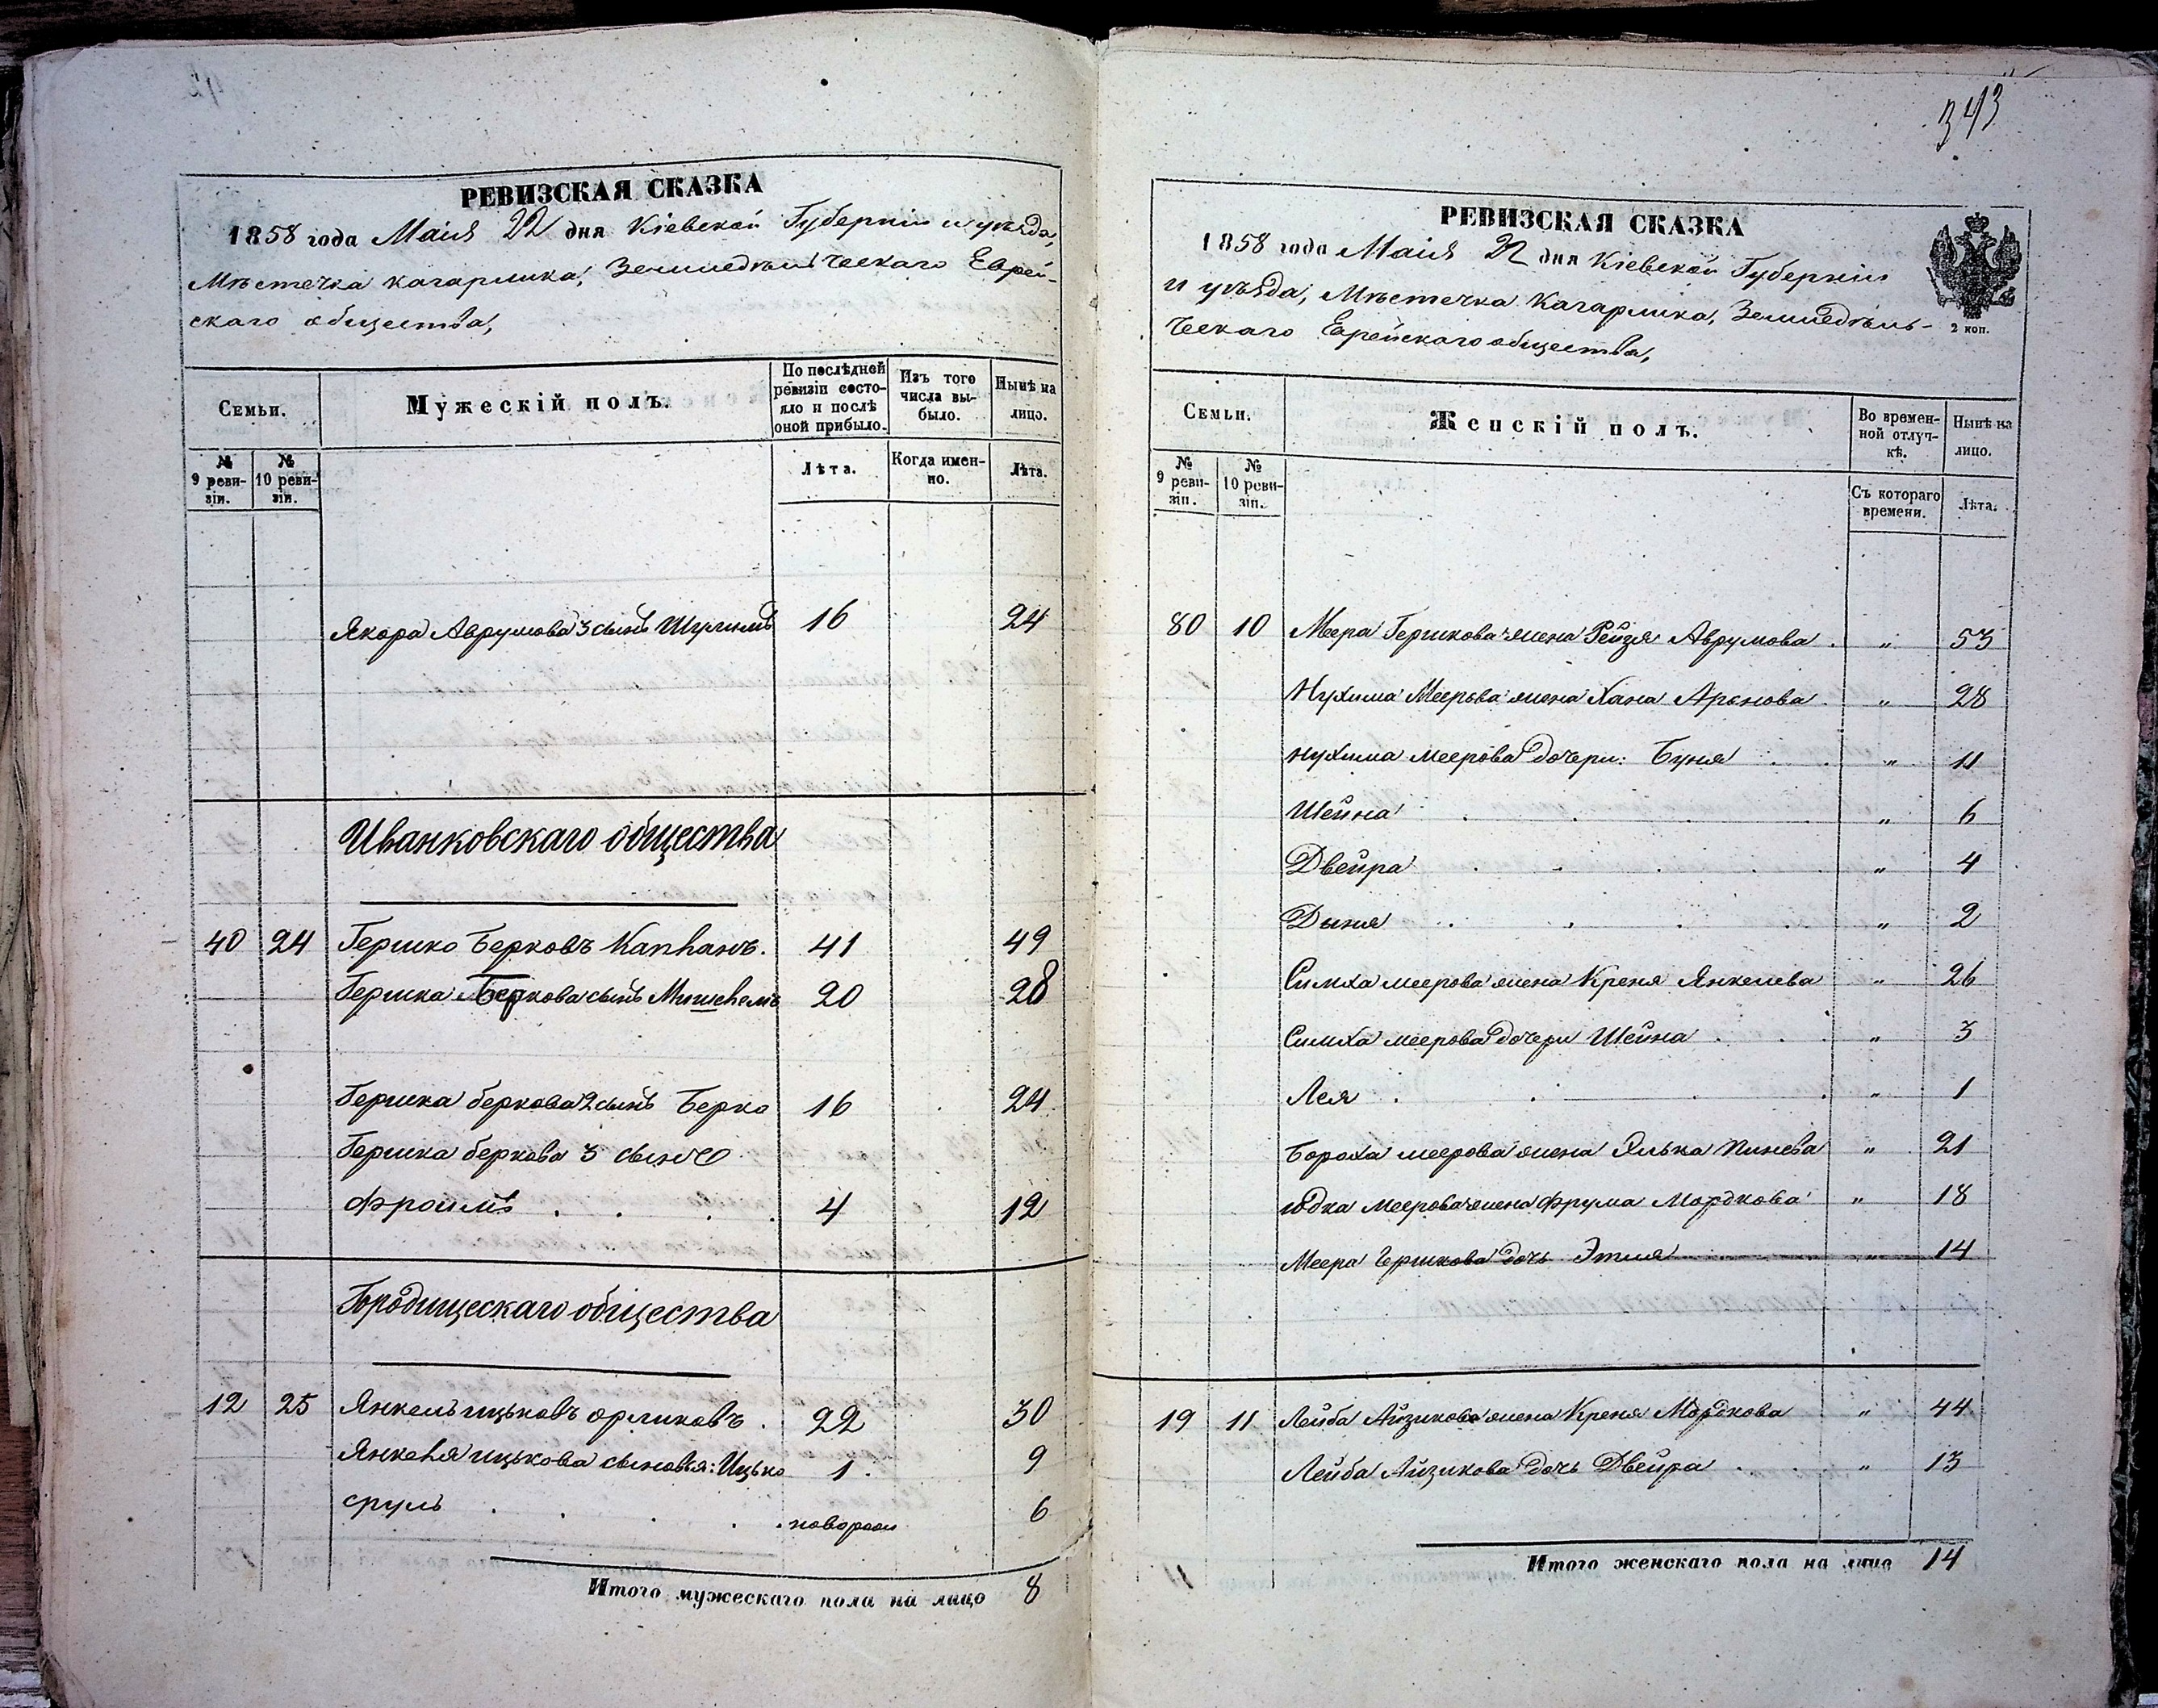 343
РЕВИЗСКАЯ СКАЗКА
1858 года Маия 22 дня Кіевской Губерніи и уѣзда,
Мѣстечка Кагарлика, Земледѣльческаго Еврей-
скаго общества,
Семьи.
Мужескій полъ.
По послѣдней ревизіи состо-яло и послѣ оной прибыло.
Изъ того числа вы-было.
Нынѣ на лицо.
№ 9 реви-зіи.
№ 10 реви-зіи.
Лѣта.
Когда имен-но.
Лѣта.
Аврумова 3 сынъ Шулимъ 16 24
Иванковскаго общества
40 24 Гершко Берковъ Капланъ. 41 49
Гершка Беркова сынъ 20 28
Гершка беркова 2 сынъ Берко 16 24
Гершка беркова 3 сынъ
Фроимъ 4 12
Городищескаго общества
12 25 Янкель ицьковъ орликовъ. 22 30
Янкеля ицькова сыновья: Ицько 1. 9
сруль новорож 6
Итого мужескаго пола на лицо 8
РЕВИЗСКАЯ СКАЗКА
1858 года Маия 22 дня Кіевской Губерніи
и уѣзда, Мѣстечка Кагарлика, Земледѣль-
ческаго Еврейскаго общества,
2 коп.
Семьи.
Женскій полъ.
Во времен-ной отлуч-кѣ.
Нынѣ на лицо.
№ 9 реви-зіи.
№ 10 реви-зіи.
Съ котораго времени.
Лѣта.
80 10 Меера Гершкова жена Рейзя Аврумова . " 53
Нухима Меерова жена Хана Арьнова . " 28
нухима меерова дочери: Буня " 11
Шейна " 6
Двейра " 4
Дыня " 2
Симха меерова жена Креня Янкелева " 26
Симха меерова дочери Шейна " 3
Лея " 1
Бороха меерова жена Элька Пинева " 21
юдка меерова жена Фрума Мордкова " 18
Меера Гершкова дочь Этля " 14
19 11 Лейба Айзикова жена Креня Мордкова " 44
Лейба Айзикова дочь Двейра " 13
Итого женскаго пола на лицо 14